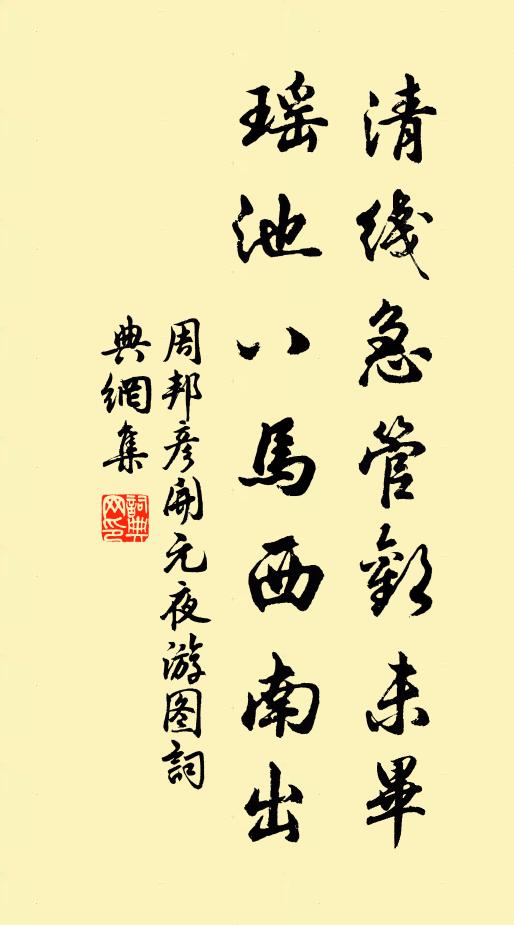 清綫急管歡未畢
瑶池八馬西南出
周邦彥開元夜游图詞
典網集
詞典
网印